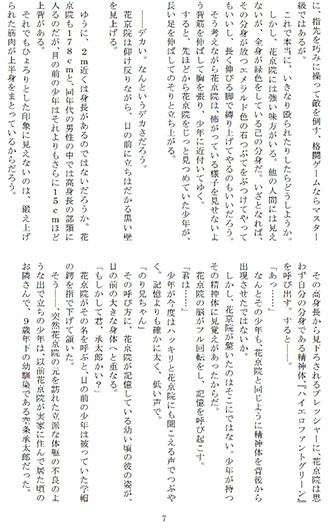 に、指先を巧みに操って敵を倒す、格闘ゲームならマスター
級ではあるが。
これで本当に、いきなり殴られたりしたらどうしようか。
しかし、花京院には強い味方がいる。他の人間には見え
ないが、全身が緑色をしている己の分身だ。いざとなれば、
その分身が放つエメラルド色の石つぶてをぶつけてやって
もいいし、長く伸びる脚で縛り上げてやるのもいいだろう。
そう考えながら花京院は、怖がっている様子を見せないよ
う背筋を伸ばして胸を張り、少年に近付いてゆく。
すると、先ほどから花京院をじっと見つめていた少年が、
長い足を伸ばしてのそりと立ち上がる。
――デカい。なんというデカさだろう。
花京院は仰け反りながら、目の前に立ちはだかる黒い壁
を見上げる。
ゆうに、2m近くは身長があるのではないだろうか。花
京院も178cmと、同年代の男性の中では高身長の部類に
入るのだが、目の前の少年はそれよりもさらに15cmほど
上背がある。
それでもひょろりとした印象に見えないのは、鍛え上げ
られた筋肉が半身をまとっているからだろう。
その高身長から見下ろされるプレッシャーに、花京院は思
わず自分の分身である精神体『ハイエロファントグリーン』
を呼び出す。すると――。
「あっ……」
なんとその少年も、花京院と同じように精神体を背後から
出現させたではないか。
しかし、花京院が驚いたのはそこにではない。少年が持つ
その精神体に見覚えがあったからだ。
花京院の脳がフル回転をし、記憶を呼び起こす。
「君は……」
少年が今度はハッキリと花京院にも聞こえる声でつぶや
く。記憶よりも確かに太く、低い声で。
「のり兄ちゃん」
その呼び方に、花京院が記憶している幼い頃の彼の姿が、
目の前の大きな身体へと重なる。
「もしかして君、承太郎かい？」
花京院がその名を呼ぶと、目の前の少年は被っていた学帽
の鍔を指で下げて頷いた。
そう――突然花京院の元を訪れた立派な体躯の不良のよ
うな出で立ちの少年は、以前花京院が実家に住んで居た頃の
お隣さんで、9歳年下の幼馴染である空条承太郎だった。
7